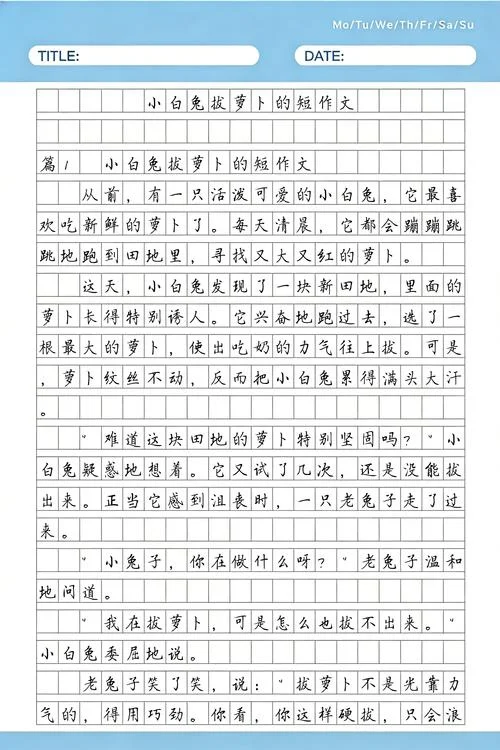 Mo/Tu/We/Th/Fr/Sa/Su
TITLE: DATE:
小白兔拔萝卜的短作文
篇1 小白兔拔萝卜的短作文
从前，有一只活泼可爱的小白兔，它最喜
欢吃新鲜的萝卜了。每天清晨，它都会蹦蹦跳
跳地跑到田地里，寻找又大又红的萝卜。
这天，小白兔发现了一块新田地，里面的
萝卜长得特别诱人。它兴奋地跑过去，选了一
根最大的萝卜，使出吃奶的力气往上拔。可是
，萝卜纹丝不动，反而把小白兔累得满头大汗
。
“难道这块田地的萝卜特别坚固吗？”小
白兔疑惑地想着。它又试了几次，还是没能拔
出来。正当它感到沮丧时，一只老兔子走了过
来。
“小兔子，你在做什么呀？”老兔子温和
地问道。
“我在拔萝卜，可是怎么也拔不出来。”
小白兔委屈地说。
老兔子笑了笑，说：“拔萝卜不是光靠力
气的，得用巧劲。你看，你这样硬拔，只会浪